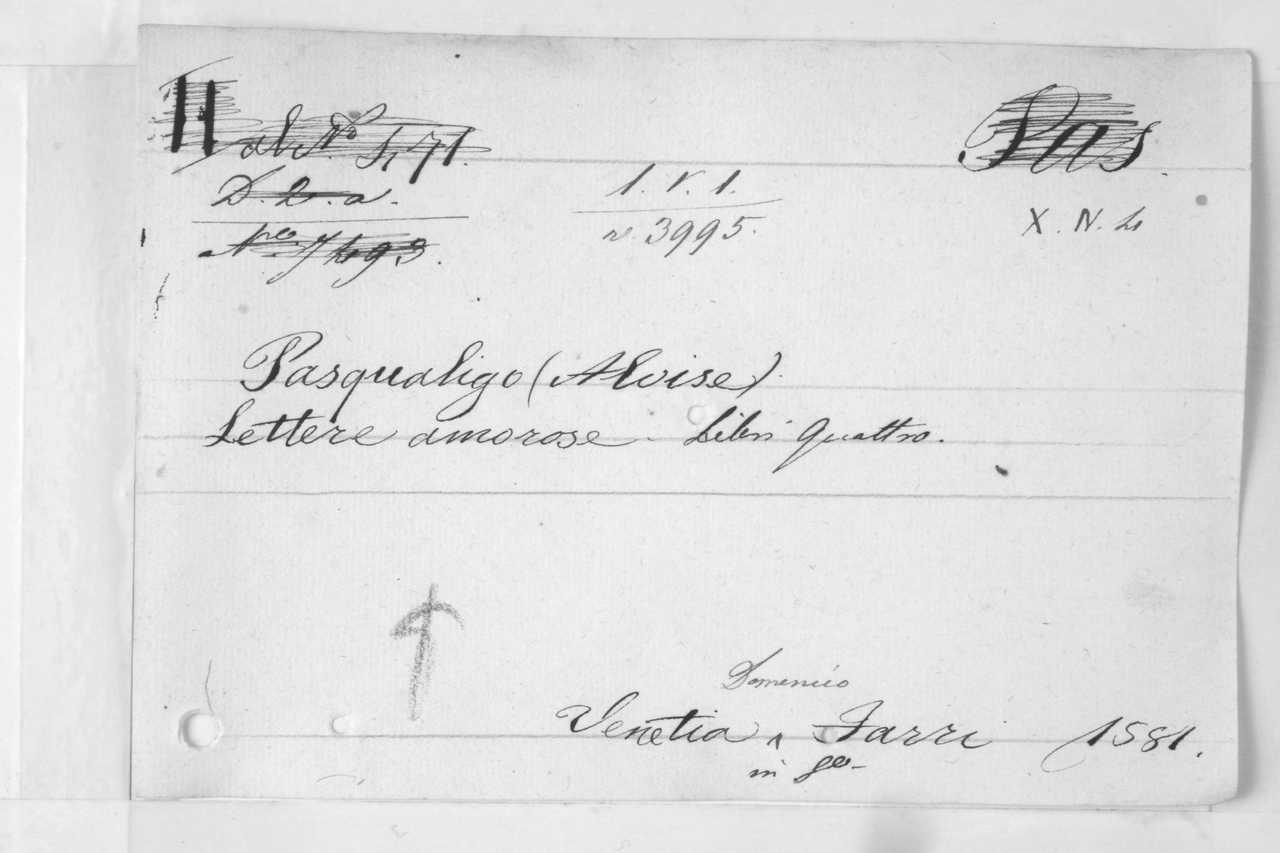 Pas.
D. b. a.
1. V. 1.
n. 3995.
X. N. 4
Pasqualigo (Alvise).
Lettere amorose. Libri quattro.
Domenico
Venetia, Farri 1581.
in 8º